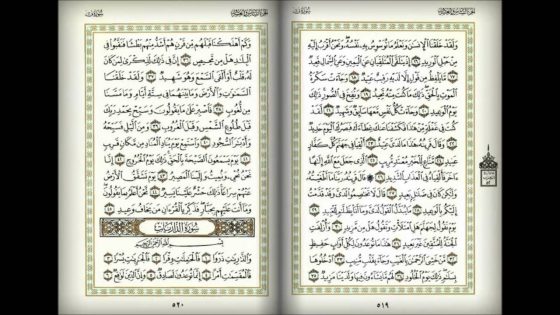 سُورَةُ قٓ
الجزء السادس والعشرون
وَلَقَدْ خَلَقْنَا ٱلْإِنسَٰنَ وَنَعْلَمُ مَا تُوَسْوِسُ بِهِۦ نَفْسُهُۥ وَنَحْنُ أَقْرَبُ إِلَيْهِ
مِنْ حَبْلِ ٱلْوَرِيدِ ١٦ إِذْ يَتَلَقَّى ٱلْمُتَلَقِّيَانِ عَنِ ٱلْيَمِينِ وَعَنِ ٱلشِّمَالِ قَعِيدٌ
١٧ مَّا يَلْفِظُ مِن قَوْلٍ إِلَّا لَدَيْهِ رَقِيبٌ عَتِيدٌ ١٨ وَجَآءَتْ سَكْرَةُ
ٱلْمَوْتِ بِٱلْحَقِّ ذَٰلِكَ مَا كُنتَ مِنْهُ تَحِيدُ ١٩ وَنُفِخَ فِى ٱلصُّورِ ذَٰلِكَ
يَوْمُ ٱلْوَعِيدِ ٢٠ وَجَآءَتْ كُلُّ نَفْسٍ مَّعَهَا سَآئِقٌ وَشَهِيدٌ ٢١ لَّقَدْ
كُنتَ فِى غَفْلَةٍ مِّنْ هَٰذَا فَكَشَفْنَا عَنكَ غِطَآءَكَ فَبَصَرُكَ ٱلْيَوْمَ حَدِيدٌ
٢٢ وَقَالَ قَرِينُهُۥ هَٰذَا مَا لَدَىَّ عَتِيدٌ ٢٣ أَلْقِيَا فِى جَهَنَّمَ كُلَّ كَفَّارٍ
عَنِيدٍ ٢٤ مَّنَّاعٍ لِّلْخَيْرِ مُعْتَدٍ مُّرِيبٍ ٢٥ ٱلَّذِى جَعَلَ مَعَ ٱللَّهِ إِلَٰهًا
ءَاخَرَ فَأَلْقِيَاهُ فِى ٱلْعَذَابِ ٱلشَّدِيدِ ٢٦ ۞ قَالَ قَرِينُهُۥ رَبَّنَا مَآ أَطْغَيْتُهُۥ
وَلَٰكِن كَانَ فِى ضَلَٰلٍۭ بَعِيدٍ ٢٧ قَالَ لَا تَخْتَصِمُوا۟ لَدَىَّ وَقَدْ قَدَّمْتُ
إِلَيْكُم بِٱلْوَعِيدِ ٢٨ مَا يُبَدَّلُ ٱلْقَوْلُ لَدَىَّ وَمَآ أَنَا۠ بِظَلَّٰمٍ لِّلْعَبِيدِ ٢٩
يَوْمَ نَقُولُ لِجَهَنَّمَ هَلِ ٱمْتَلَأْتِ وَتَقُولُ هَلْ مِن مَّزِيدٍ ٣٠ وَأُزْلِفَتِ
ٱلْجَنَّةُ لِلْمُتَّقِينَ غَيْرَ بَعِيدٍ ٣١ هَٰذَا مَا تُوعَدُونَ لِكُلِّ أَوَّابٍ حَفِيظٍ
٣٢ مَّنْ خَشِىَ ٱلرَّحْمَٰنَ بِٱلْغَيْبِ وَجَآءَ بِقَلْبٍ مُّنِيبٍ ٣٣ ٱدْخُلُوهَا
بِسَلَٰمٍ ذَٰلِكَ يَوْمُ ٱلْخُلُودِ ٣٤ لَهُم مَّا يَشَآءُونَ فِيهَا وَلَدَيْنَا مَزِيدٌ ٣٥
٥١٩
الجزء السادس والعشرون
سُورَةُ قٓ
وَكَمْ أَهْلَكْنَا قَبْلَهُم مِّن قَرْنٍ هُمْ أَشَدُّ مِنْهُم بَطْشًا فَنَقَّبُوا۟ فِى
ٱلْبِلَٰدِ هَلْ مِن مَّحِيصٍ ٣٦ إِنَّ فِى ذَٰلِكَ لَذِكْرَىٰ لِمَن كَانَ
لَهُۥ قَلْبٌ أَوْ أَلْقَى ٱلسَّمْعَ وَهُوَ شَهِيدٌ ٣٧ وَلَقَدْ خَلَقْنَا
ٱلسَّمَٰوَٰتِ وَٱلْأَرْضَ وَمَا بَيْنَهُمَا فِى سِتَّةِ أَيَّامٍ وَمَا مَسَّنَا
مِن لُّغُوبٍ ٣٨ فَٱصْبِرْ عَلَىٰ مَا يَقُولُونَ وَسَبِّحْ بِحَمْدِ رَبِّكَ
قَبْلَ طُلُوعِ ٱلشَّمْسِ وَقَبْلَ ٱلْغُرُوبِ ٣٩ وَمِنَ ٱلَّيْلِ فَسَبِّحْهُ
وَأَدْبَٰرَ ٱلسُّجُودِ ٤٠ وَٱسْتَمِعْ يَوْمَ يُنَادِ ٱلْمُنَادِ مِن مَّكَانٍ قَرِيبٍ
٤١ يَوْمَ يَسْمَعُونَ ٱلصَّيْحَةَ بِٱلْحَقِّ ذَٰلِكَ يَوْمُ ٱلْخُرُوجِ ٤٢ إِنَّا
نَحْنُ نُحْىِۦ وَنُمِيتُ وَإِلَيْنَا ٱلْمَصِيرُ ٤٣ يَوْمَ تَشَقَّقُ ٱلْأَرْضُ
عَنْهُمْ سِرَاعًا ذَٰلِكَ حَشْرٌ عَلَيْنَا يَسِيرٌ ٤٤ نَّحْنُ أَعْلَمُ بِمَا يَقُولُونَ
وَمَآ أَنتَ عَلَيْهِم بِجَبَّارٍ فَذَكِّرْ بِٱلْقُرْءَانِ مَن يَخَافُ وَعِيدِ ٤٥
سُورَةُ الذَّارِيَاتِ
بِسْمِ ٱللَّهِ ٱلرَّحْمَٰنِ ٱلرَّحِيمِ
وَٱلذَّٰرِيَٰتِ ذَرْوًا ١ فَٱلْحَٰمِلَٰتِ وِقْرًا ٢ فَٱلْجَٰرِيَٰتِ يُسْرًا ٣
فَٱلْمُقَسِّمَٰتِ أَمْرًا ٤ إِنَّمَا تُوعَدُونَ لَصَادِقٌ ٥ وَإِنَّ ٱلدِّينَ لَوَٰقِعٌ ٦
٥٢٠